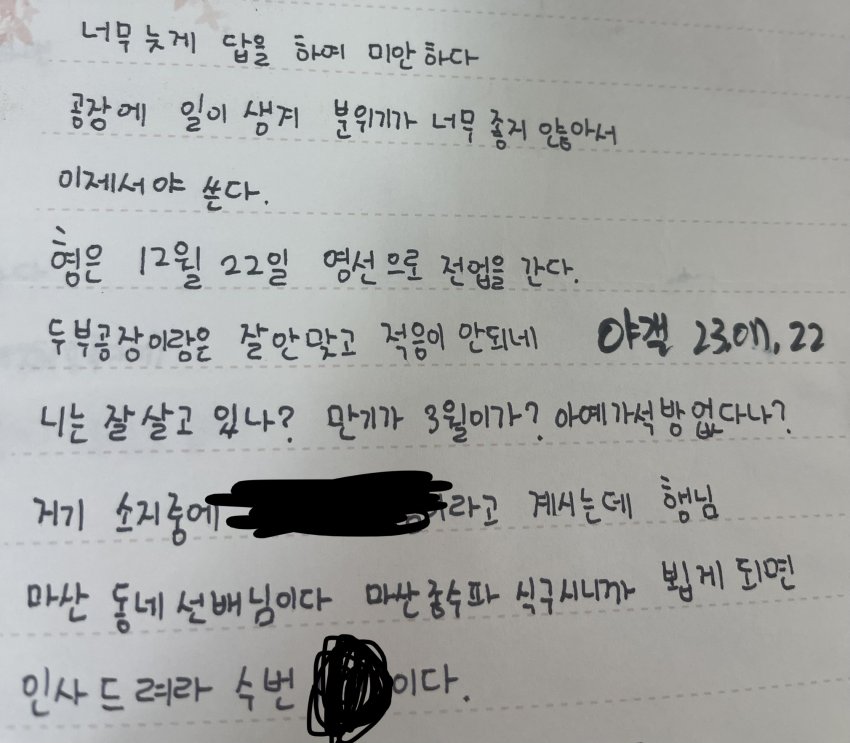 너무 늦게 답을 하여 미안하다
공장에 일이 생겨 분위기가 너무 좋지 않아서
이제서야 쓴다.
형은 12월 22일 영선으로 전업을 간다.
두부공장이랑은 잘 안맞고 적응이 안되네
니는 잘 살고 있나? 만기가 3월이가? 아예 가석방 없다나?
저기 소지중에 라고 계시는데 행님
마산 동네 선배님이다 마산 중수파 식구시니까 뵙게 되면
인사 드려라 수번 이다.